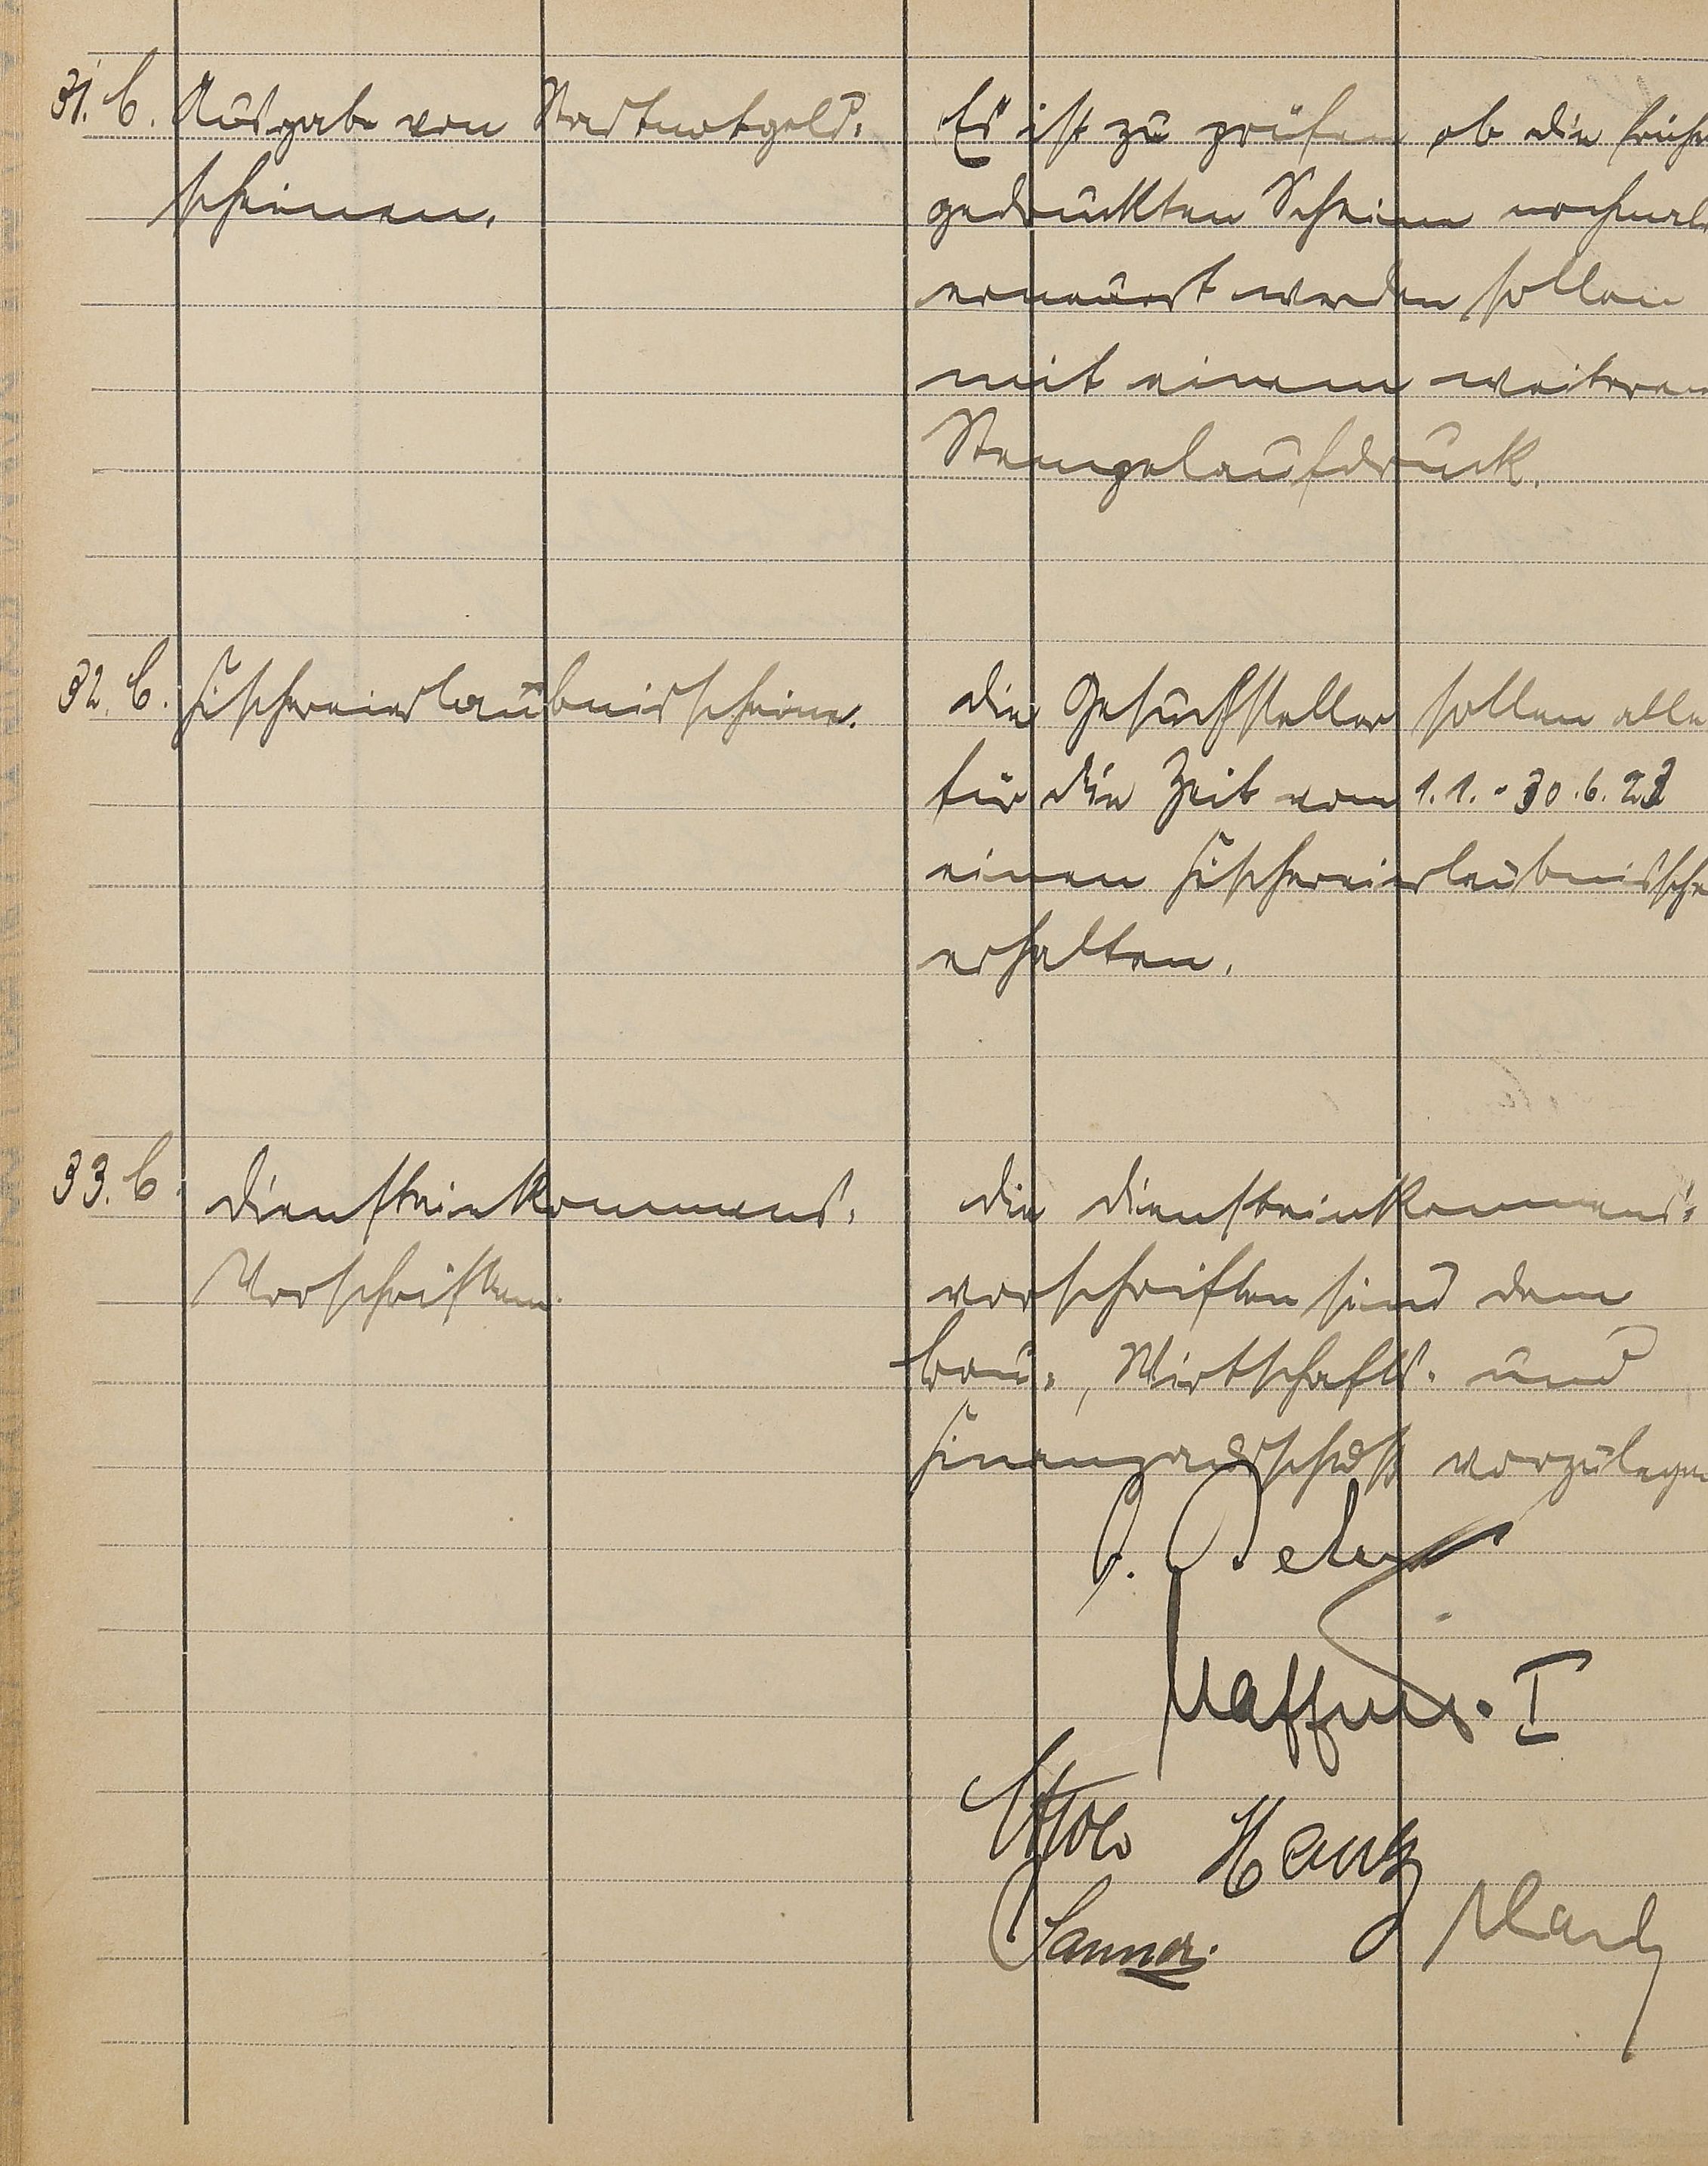 31. C. Ausgabe von Stadtnotgeld-
scheinen.
Es ist zu prüfen, ob die früher
gedruckten Scheine nochmals
erneuert werden sollen
mit einem weiteren
Stempelaufdruck.
32. C. Fischereierlaubnisscheine.
Die Gesuchsteller sollen alle
für die Zeit vom 1.1. - 30.6.23
einen Fischereierlaubnissche
erhalten.
33. C. Diensteinkommens-
Vorschriften.
Die Diensteinkommens-
vorschriften sind dem
Bau-, Wirtschafts- und
Finanzausschuß vorzulegen
I
Sanner.